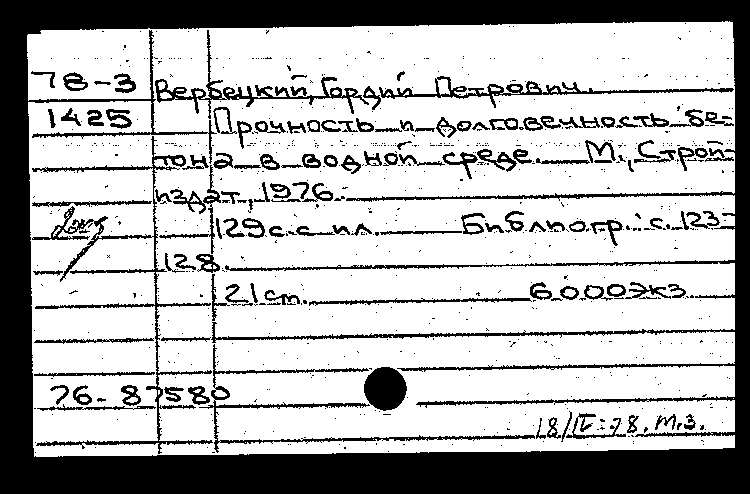 78-3 Вербецкий, Гордий Петрович.
1425 Прочность и долговечность бе-
тона в водной среде. М., Строй-
издат, 1976.
129с. с ил. Библиогр.: с. 123-
128.
21 см. 6000экз
76-87580
18/IV-78. М.З.